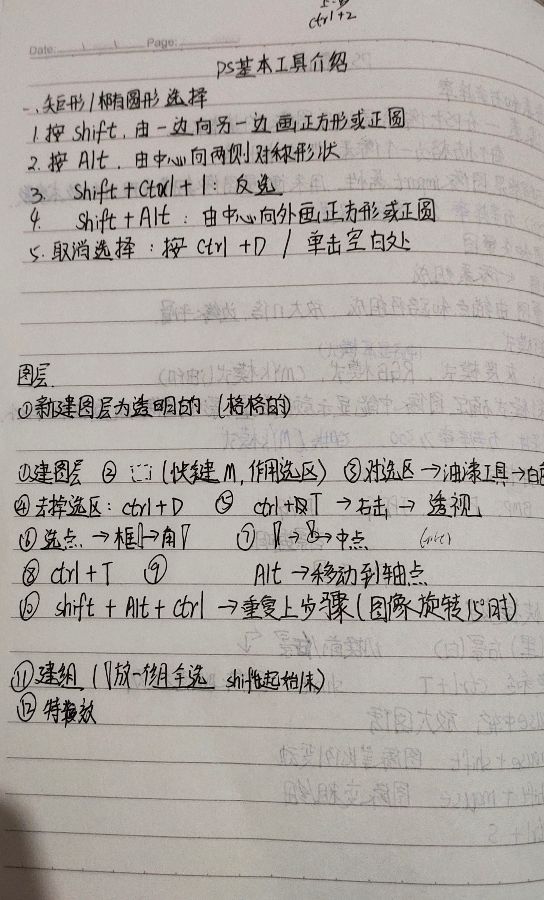 ctrl+2
Date: Page:
PS基本工具介绍
一、矩形/椭圆形选择
1. 按 shift, 由一边向另一边画正方形或正圆
2. 按 Alt, 由中心向两侧对称形状
3. shift+Ctrl+I: 反选
4. shift+Alt: 由中心向外画正方形或正圆
5. 取消选择: 按 ctrl+D / 单击空白处
图层
①新建图层为透明的 (格格的)
①建图层 ② (快捷 M, 作用选区) ③对选区→油漆工具→白色
④去掉选区: ctrl+D ⑤ ctrl+T→右击→透视
⑥选点→框→角 ⑦ →中点
⑧ ctrl+T ⑨ Alt→移动到轴点
⑩ shift+Alt+ctrl→重复上步骤(图像旋转15°时)
⑪建组 (放一组全选 shift起始末)
⑫特效